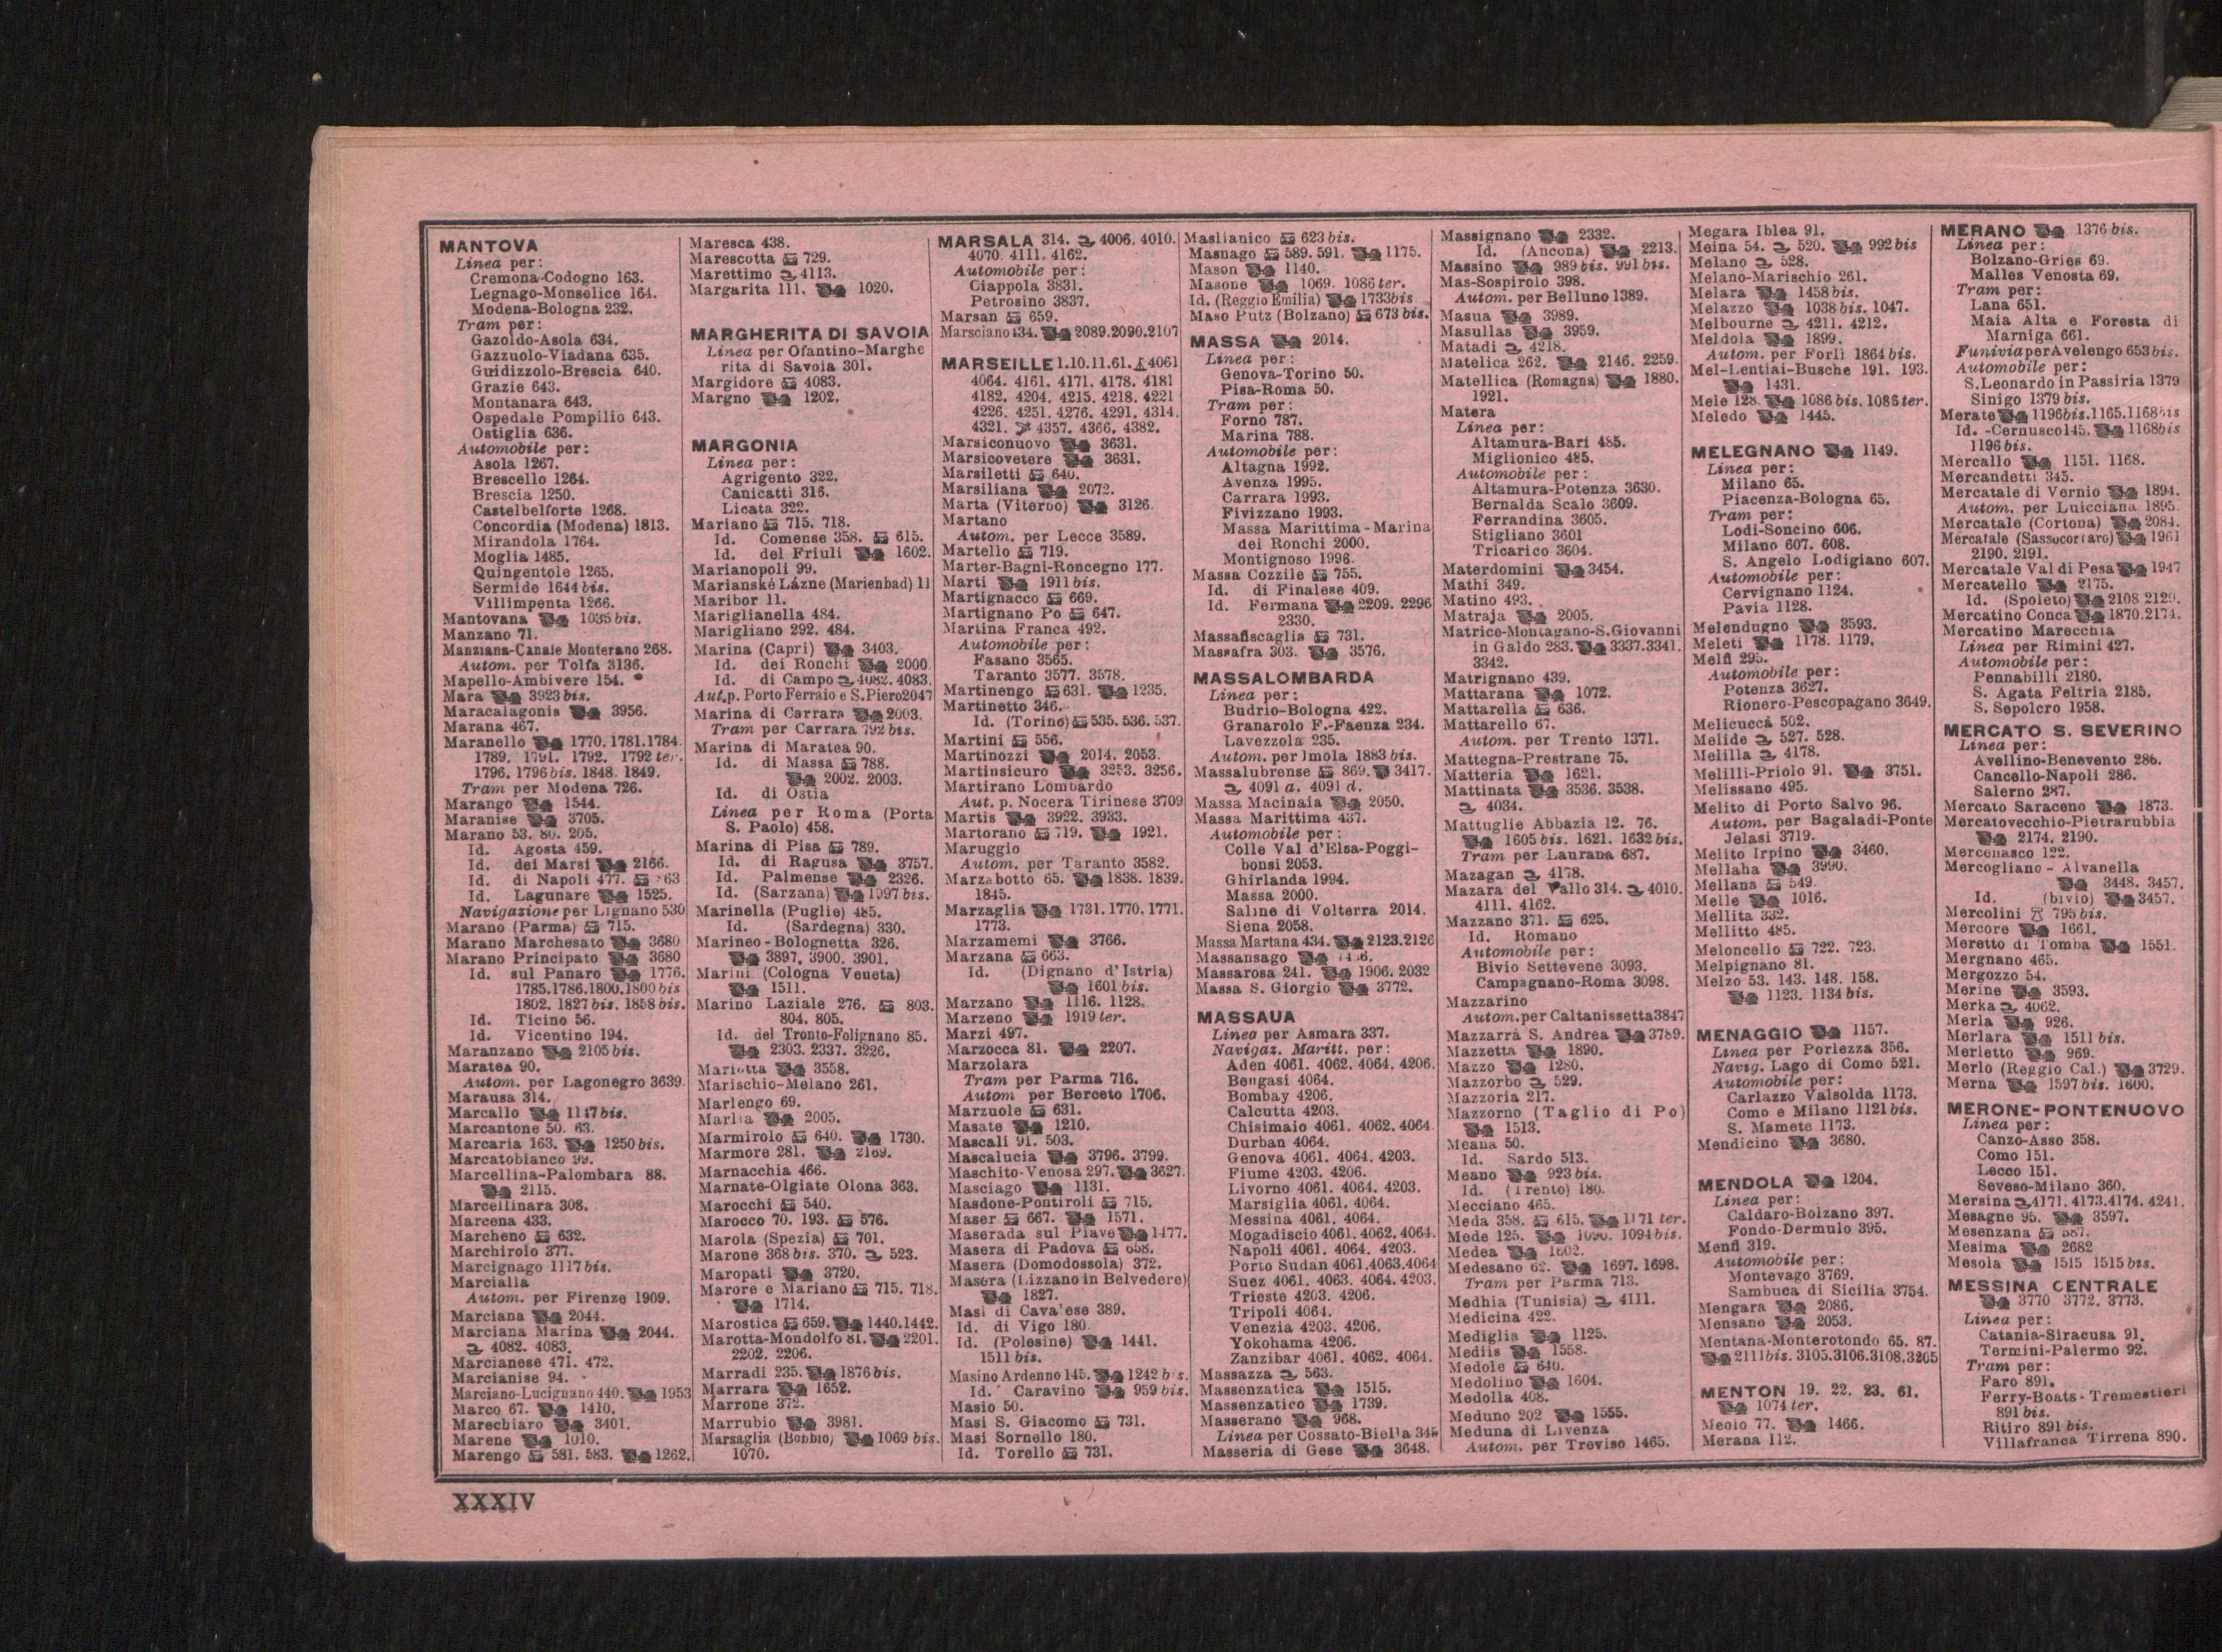 MANTOVA
Linea per:
Cremona-Codogno 163.
Legnago-Monselice 164.
Modena-Bologna 232.
Tram per:
Gazoldo-Asola 634.
Gazzuolo-Viadana 635.
Guidizzolo-Brescia 640.
Grazie 643.
Montanara 643.
Ospedale Pompilio 643.
Ostiglia 636.
Automobile per:
Asola 1267.
Brescello 1264.
Brescia 1250.
Castelbelforte 1268.
Concordia (Modena) 1813.
Mirandola 1764.
Moglia 1485.
Quingentole 1265.
Sermide 1644 bis.
Villimpenta 1266.
Mantovana 1035 bis.
Manzano 71.
Manziana-Canale Monterano 268.
Autom. per Tolfa 3136.
Mapello-Ambivere 154.
Mara 3923 bis.
Maracalagonis 3956.
Marana 467.
Maranello 1770. 1781. 1784.
1789. 1791. 1792. 1792 ter.
1796. 1796 bis. 1848. 1849.
Tram per Modena 726.
Marango 1544.
Maranise 3705.
Marano 53. 80. 205.
Id. Agosta 459.
Id. dei Marsi 2166.
Id. di Napoli 477.
Id. Lagunare 1525.
Navigazione per Lignano 530
Marano (Parma) 715.
Marano Marchesato 3680
Marano Principato 3680
Id. sul Panaro 1776.
1785. 1786. 1800. 1800 bis
1802. 1827 bis. 1858 bis.
Id. Ticino 56.
Id. Vicentino 194.
Maranzano 2105 bis.
Maratea 90.
Autom. per Lagonegro 3639.
Marausa 314.
Marcallo 1147 bis.
Marcantone 50. 63.
Marcaria 163. 1250 bis.
Marcatobianco 99.
Marcellina-Palombara 88.
2115.
Marcellinara 308.
Marcena 433.
Marcheno 632.
Marchirolo 377.
Marcignago 1117 bis.
Marcialla
Autom. per Firenze 1909.
Marciana 2044.
Marciana Marina 2044.
4082. 4083.
Marcianese 471. 472.
Marcianise 94.
Marciano-Lucignano 440. 1953
Marco 67. 1410.
Marechiaro 3401.
Marene 1010.
Marengo 581. 583. 1262.
Maresca 438.
Marescotta 729.
Marettimo 4113.
Margarita 111. 1020.
MARGHERITA DI SAVOIA
Linea per Ofantino-Marghe
rita di Savoia 301.
Margidore 4083.
Margno 1202.
MARGONIA
Linea per:
Agrigento 322.
Canicatti 316.
Licata 322.
Mariano 715. 718.
Id. Comense 358. 615.
Id. del Friuli 1602.
Marianopoli 99.
Marianské Lázne (Marienbad) 11
Maribor 11.
Mariglianella 484.
Marigliano 292. 484.
Marina (Capri) 3403.
Id. dei Ronchi 2000
Id. di Campo 4082. 4083.
Aut. p. Porto Ferraio e S. Piero 2047
Marina di Carrara 2003.
Tram per Carrara 792 bis.
Marina di Maratea 90.
Id. di Massa 788.
2002. 2003.
Id. di Ostia
Linea per Roma (Porta
S. Paolo) 458.
Marina di Pisa 789.
Id. di Ragusa 3757.
Id. Palmense 2326.
Id. (Sarzana) 1997 bis.
Marinella (Puglie) 485.
Id. (Sardegna) 330.
Marineo-Bolognetta 326.
3897. 3900. 3901.
Marini (Cologna Veneta)
1511.
Marino Laziale 276. 803.
804. 805.
Id. del Tronto-Folignano 85.
2303. 2337. 3226.
Mariotta 3558.
Marischio-Melano 261.
Marlengo 69.
Marlia 2005.
Marmirolo 640. 1730.
Marmore 281. 2169.
Marnacchia 466.
Marnate-Olgiate Olona 363.
Marocchi 540.
Marocco 70. 193. 576.
Marola (Spezia) 701.
Marone 368 bis. 370. 523.
Maropati 3720.
Marore e Mariano 715. 718.
1714.
Marostica 659. 1440. 1442.
Marotta-Mondolfo 81. 2201.
2202. 2206.
Marradi 235. 1876 bis.
Marrara 1652.
Marrone 372.
Marrubio 3981.
Marsaglia (Bobbio) 1069 bis.
1070.
MARSALA 314. 4006. 4010.
4070. 4111. 4162.
Automobile per:
Ciappola 3831.
Petrosino 3837.
Marsan 659.
Marsciano 434. 2089. 2090. 2107
MARSEILLE 1. 10. 11. 61. 4061
4064. 4161. 4171. 4178. 4181
4182. 4204. 4215. 4218. 4221
4226. 4251. 4276. 4291. 4314.
4321. 4357. 4366. 4382.
Marsiconuovo 3631.
Marsicovetere 3631.
Marsiletti 640.
Marsiliana 2072.
Marta (Viterbo) 3126.
Martano
Autom. per Lecce 3589.
Martello 719.
Marter-Bagni-Roncegno 177.
Marti 1911 bis.
Martignacco 669.
Martignano Po 647.
Martina Franca 492.
Automobile per:
Fasano 3565.
Taranto 3577. 3578.
Martinengo 631. 1235.
Martinetto 346.
Id. (Torino) 535. 536. 537.
Martini 556.
Martinozzi 2014. 2053.
Martinsicuro 3253. 3256.
Martirano Lombardo
Aut. p. Nocera Tirinese 3709
Martis 3922. 3933.
Martorano 719. 1921.
Maruggio
Autom. per Taranto 3582.
Marzabotto 65. 1838. 1839.
1845.
Marzaglia 1731. 1770. 1771.
1773.
Marzamemi 3766.
Marzana 663.
Id. (Dignano d'Istria)
1601 bis.
Marzano 1116. 1128.
Marzeno 1919 ter.
Marzi 497.
Marzocca 81. 2207.
Marzolara
Tram per Parma 716.
Autom per Berceto 1706.
Marzuole 631.
Masate 1210.
Mascali 91. 503.
Mascalucia 3796. 3799.
Maschito-Venosa 297. 3627.
Masciago 1131.
Masdone-Pontiroli 715.
Maser 667. 1571.
Maserada sul Piave 1477.
Masera di Padova 658.
Masera (Domodossola) 372.
Masera (Lizzano in Belvedere)
1827.
Masi di Cavalese 389.
Id. di Vigo 180.
Id. (Polesine) 1441.
1511 bis.
Masino Ardenno 145. 1242 bis.
Id. Caravino 959 bis.
Masio 50.
Masi S. Giacomo 731.
Masi Sornello 180.
Id. Torello 731.
Maslianico 623 bis.
Masnago 589. 591. 1175.
Mason 1140.
Masone 1069. 1086 ter.
Id. (Reggio Emilia) 1733 bis
Maso Putz (Bolzano) 673 bis.
MASSA 2014.
Linea per:
Genova-Torino 50.
Pisa-Roma 50.
Tram per:
Forno 787.
Marina 788.
Automobile per:
Altagna 1992.
Avenza 1995.
Carrara 1993.
Fivizzano 1993.
Massa Marittima-Marina
dei Ronchi 2000.
Montignoso 1996.
Massa Cozzile 755.
Id. di Finalese 409.
Id. Fermana 2209. 2296
2330.
Massafiscaglia 731.
Massafra 303. 3576.
MASSALOMBARDA
Linea per:
Budrio-Bologna 422.
Granarolo F.-Faenza 234.
Lavezzola 235.
Autom. per Imola 1883 bis.
Massalubrense 869. 3417.
4091 a. 4091 d.
Massa Macinaia 2050.
Massa Marittima 437.
Automobile per:
Colle Val d'Elsa-Poggi-
bonsi 2053.
Ghirlanda 1994.
Massa 2000.
Saline di Volterra 2014.
Siena 2058.
Massa Martana 434. 2123. 2126
Massansago
Massarosa 241. 1906. 2032
Massa S. Giorgio 3772.
MASSAUA
Linea per Asmara 337.
Navigaz. Maritt. per:
Aden 4061. 4062. 4064. 4206.
Bengasi 4064.
Bombay 4206.
Calcutta 4203.
Chisimaio 4061. 4062. 4064.
Durban 4064.
Genova 4061. 4064. 4203.
Fiume 4203. 4206.
Livorno 4061. 4064. 4203.
Marsiglia 4061. 4064.
Messina 4061. 4064.
Mogadiscio 4061. 4062. 4064.
Napoli 4061. 4064. 4203.
Porto Sudan 4061. 4063. 4064
Suez 4061. 4063. 4064. 4203.
Trieste 4203. 4206.
Tripoli 4064.
Venezia 4203. 4206.
Yokohama 4206.
Zanzibar 4061. 4062. 4064.
Massazza 563.
Massenzatica 1515.
Massenzatico 1739.
Masserano 968.
Linea per Cossato-Biella 345
Masseria di Gese 3648.
Massignano 2332.
Id. (Ancona) 2213.
Massino 989 bis. 991 bis.
Mas-Sospirolo 398.
Autom. per Belluno 1389.
Masua 3989.
Masullas 3959.
Matadi 4218.
Matelica 262. 2146. 2259.
Matellica (Romagna) 1880.
1921.
Matera
Linea per:
Altamura-Bari 485.
Miglionico 485.
Automobile per:
Altamura-Potenza 3630.
Bernalda Scalo 3609.
Ferrandina 3605.
Stigliano 3601
Tricarico 3604.
Materdomini 3454.
Mathi 349.
Matino 493.
Matraja 2005.
Matrice-Montagano-S. Giovanni
in Galdo 283. 3337. 3341.
3342.
Matrignano 439.
Mattarana 1072.
Mattarella 636.
Mattarello 67.
Autom. per Trento 1371.
Mattegna-Prestrane 75.
Matteria 1621.
Mattinata 3536. 3538.
4034.
Mattuglie Abbazia 12. 76.
1605 bis. 1621. 1632 bis.
Tram per Laurana 687.
Mazagan 4178.
Mazara del Vallo 314. 4010.
4111. 4162.
Mazzano 371. 625.
Id. Romano
Automobile per:
Bivio Settevene 3093.
Campagnano-Roma 3098.
Mazzarino
Autom. per Caltanissetta 3847
Mazzarrà S. Andrea 3789.
Mazzetta 1890.
Mazzo 1280.
Mazzorbo 529.
Mazzoria 217.
Mazzorno (Taglio di Po)
1513.
Meana 50.
Id. Sardo 513.
Meano 923 bis.
Id. (Trento) 180.
Mecciano 465.
Meda 358. 615. 1171 ter.
Mede 125. 1090. 1094 bis.
Medea 1602.
Medesano 62. 1697. 1698.
Tram per Parma 713.
Medhia (Tunisia) 4111.
Medicina 422.
Mediglia 1125.
Mediis 1558.
Medole 640.
Medolino 1604.
Medolla 408.
Meduno 202 1555.
Meduna di Livenza
Autom. per Treviso 1465.
Megara Iblea 91.
Meina 54. 520. 992 bis
Melano 528.
Melano-Marischio 261.
Melara 1458 bis.
Melazzo 1038 bis. 1047.
Melbourne 4211. 4212.
Meldola 1899.
Autom. per Forlì 1864 bis.
Mel-Lentiai-Busche 191. 193.
1431.
Mele 128. 1086 bis. 1086 ter.
Meledo 1445.
MELEGNANO 1149.
Linea per:
Milano 65.
Piacenza-Bologna 65.
Tram per:
Lodi-Soncino 606.
Milano 607. 608.
S. Angelo Lodigiano 607.
Automobile per:
Cervignano 1124.
Pavia 1128.
Melendugno 3593.
Meleti 1178. 1179.
Melfi 295.
Automobile per:
Potenza 3627.
Rionero-Pescopagano 3649.
Melicuccà 502.
Melide 527. 528.
Melilla 4178.
Melilli-Priolo 91. 3751.
Melissano 495.
Melito di Porto Salvo 96.
Autom. per Bagaladi-Ponte
Jelasi 3719.
Melito Irpino 3460.
Mellaha 3990.
Mellana 549.
Melle 1016.
Mellita 332.
Mellitto 485.
Meloncello 722. 723.
Melpignano 81.
Melzo 53. 143. 148. 158.
1123. 1134 bis.
MENAGGIO 1157.
Linea per Porlezza 356.
Navig. Lago di Como 521.
Automobile per:
Carlazzo Valsolda 1173.
Como e Milano 1121 bis.
S. Mamete 1173.
Mendicino 3680.
MENDOLA 1204.
Linea per:
Caldaro-Bolzano 397.
Fondo-Dermulo 395.
Menfi 319.
Automobile per:
Montevago 3769.
Sambuca di Sicilia 3754.
Mengara 2086.
Mensano 2053.
Mentana-Monterotondo 65. 87.
2111 bis. 3105. 3106. 3108. 3205
MENTON 19. 22. 23. 61.
1074 ter.
Meolo 77. 1466.
Merana 112.
MERANO 1376 bis.
Linea per:
Bolzano-Gries 69.
Malles Venosta 69.
Tram per:
Lana 651.
Maia Alta e Foresta di
Marniga 661.
Funivia per Avelengo 653 bis.
Automobile per:
S. Leonardo in Passiria 1379
Sinigo 1379 bis.
Merate 1196 bis. 1165. 1168 bis
Id. -Cernusco 145. 1168 bis
1196 bis.
Mercallo 1151. 1168.
Mercandetti 345.
Mercatale di Vernio 1894.
Autom. per Luicciana 1895.
Mercatale (Cortona) 2084.
Mercatale (Sassocorvaro) 1961
2190. 2191.
Mercatale Val di Pesa 1947
Mercatello 2175.
Id. (Spoleto) 2108 2129.
Mercatino Conca 1870. 2174.
Mercatino Marecchia
Linea per Rimini 427.
Automobile per:
Pennabilli 2180.
S. Agata Feltria 2185.
S. Sepolcro 1958.
MERCATO S. SEVERINO
Linea per:
Avellino-Benevento 286.
Cancello-Napoli 286.
Salerno 287.
Mercato Saraceno 1873.
Mercatovecchio-Pietrarubbia
2174. 2190.
Mercenasco 122.
Mercogliano-Alvanella
3448. 3457.
Id. (bivio) 3457.
Mercolini 795 bis.
Mercore 1661.
Meretto di Tomba 1551.
Mergnano 465.
Mergozzo 54.
Merine 3593.
Merka 4062.
Merla 926.
Merlara 1511 bis.
Merletto 969.
Merlo (Reggio Cal.) 3729.
Merna 1597 bis. 1600.
MERONE-PONTENUOVO
Linea per:
Canzo-Asso 358.
Como 151.
Lecco 151.
Seveso-Milano 360.
Mersina 4171. 4173. 4174. 4241.
Mesagne 95. 3597.
Mesenzana 587.
Mesima 2682
Mesola 1515 1515 bis.
MESSINA CENTRALE
3770 3772. 3773.
Linea per:
Catania-Siracusa 91.
Termini-Palermo 92.
Tram per:
Faro 891.
Ferry-Boats-Tremestieri
891 bis.
Ritiro 891 bis.
Villafranca Tirrena 890.
XXXIV